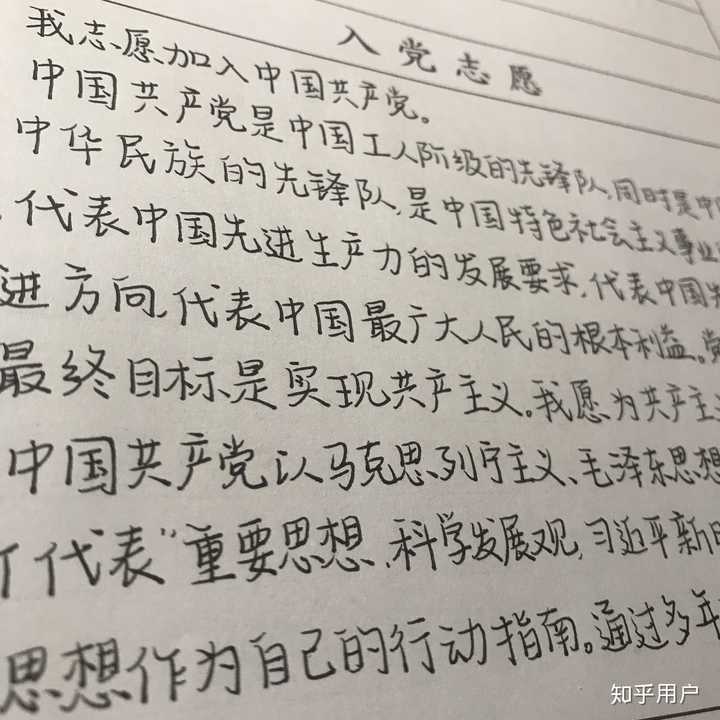 入党志愿
我志愿加入中国共产党。
中国共产党是中国工人阶级的先锋队,同时是中
中华民族的先锋队,是中国特色社会主义事业
代表中国先进生产力的发展要求,代表中国
进方向,代表中国最广大人民的根本利益。党
最终目标,是实现共产主义。我愿为共产主
中国共产党以马克思列宁主义、毛泽东思想
代表”重要思想,科学发展观,习近平新
思想作为自己的行动指南。通过多年
知乎用户